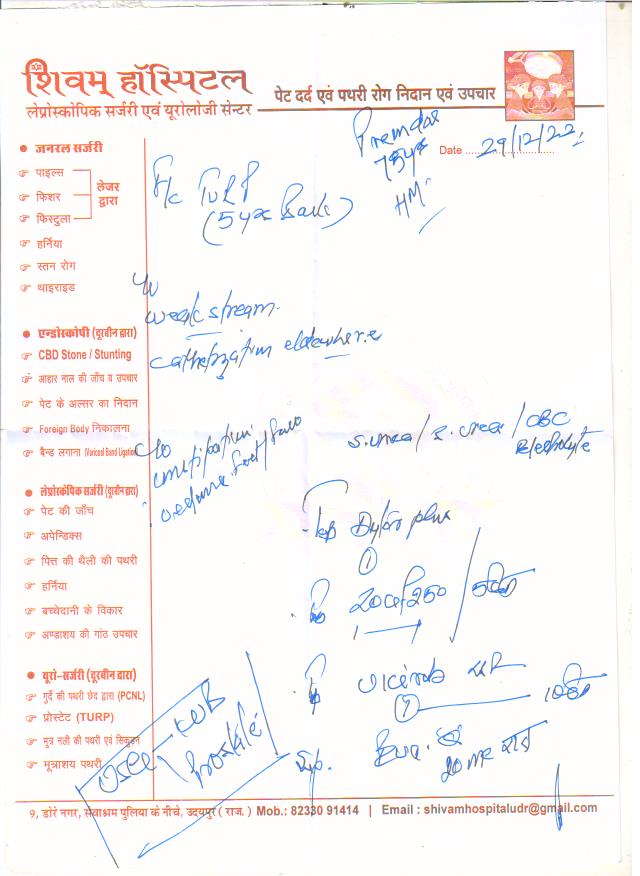 शिवम् हॉस्पिटल
लेप्रोस्कोपिक सर्जरी एवं यूरोलोजी सेन्टर
पेट दर्द एवं पथरी रोग निदान एवं उपचार
Date 29/12/22
75 yr
HM
H/c TURP
(5 yrs Back)
weak stream
elsewhere
constipation
S. urea / S. creat / CBC
Electrolyte
Tab Dytor plus
1
200/250
20 ml
USG KUB
Prostate
जनरल सर्जरी
पाइल्स
फिशर
फिस्टुला
लेजर
द्वारा
हर्निया
स्तन रोग
थाइराइड
एन्डोस्कोपी (दूरबीन द्वारा)
CBD Stone / Stunting
आहार नाल की जाँच व उपचार
पेट के अल्सर का निदान
Foreign Body निकालना
बैन्ड लगाना (Variceal Band Ligation)
लेप्रोस्कोपिक सर्जरी (दूरबीन द्वारा)
पेट की जाँच
अपेन्डिक्स
पित्त की थैली की पथरी
हर्निया
बच्चेदानी के विकार
अण्डाशय की गांठ उपचार
यूरो-सर्जरी (दूरबीन द्वारा)
गुर्दे की पथरी छेद द्वारा (PCNL)
प्रोस्टेट (TURP)
मूत्र नली की पथरी एवं सिकुड़न
मूत्राशय पथरी
9, डोरे नगर, सेवाश्रम पुलिया के नीचे, उदयपुर ( राज. ) Mob.: 82330 91414 | Email : shivamhospitaludr@gmail.com